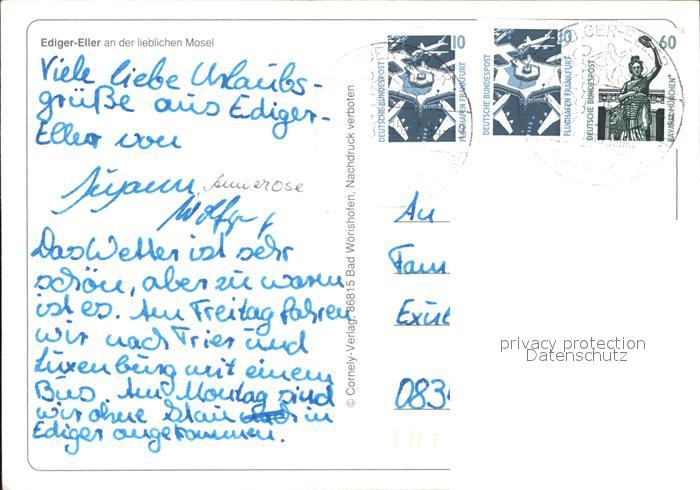 Ediger-Eller an der lieblichen Mosel
Viele liebe Urlaubs-
grüße aus Ediger-
Eller von
Susann, Annerose
Wolfg
Das Wetter ist sehr
schön, aber zu warm
ist es. Am Freitag fahren
wir nach Trier und
Luxenburg mit einem
Bus. Am Montag sind
wir ohne Stau in
Ediger angekommen.
© Cornely-Verlag, 86815 Bad Wörishofen, Nachdruck verboten
10
DEUTSCHE BUNDESPOST
FLUGHAFEN FRANKFURT
10
DEUTSCHE BUNDESPOST
FLUGHAFEN FRANKFURT
60
DEUTSCHE BUNDESPOST
BAVARIA MÜNCHEN
An
Fam
0834
privacy protection
Datenschutz